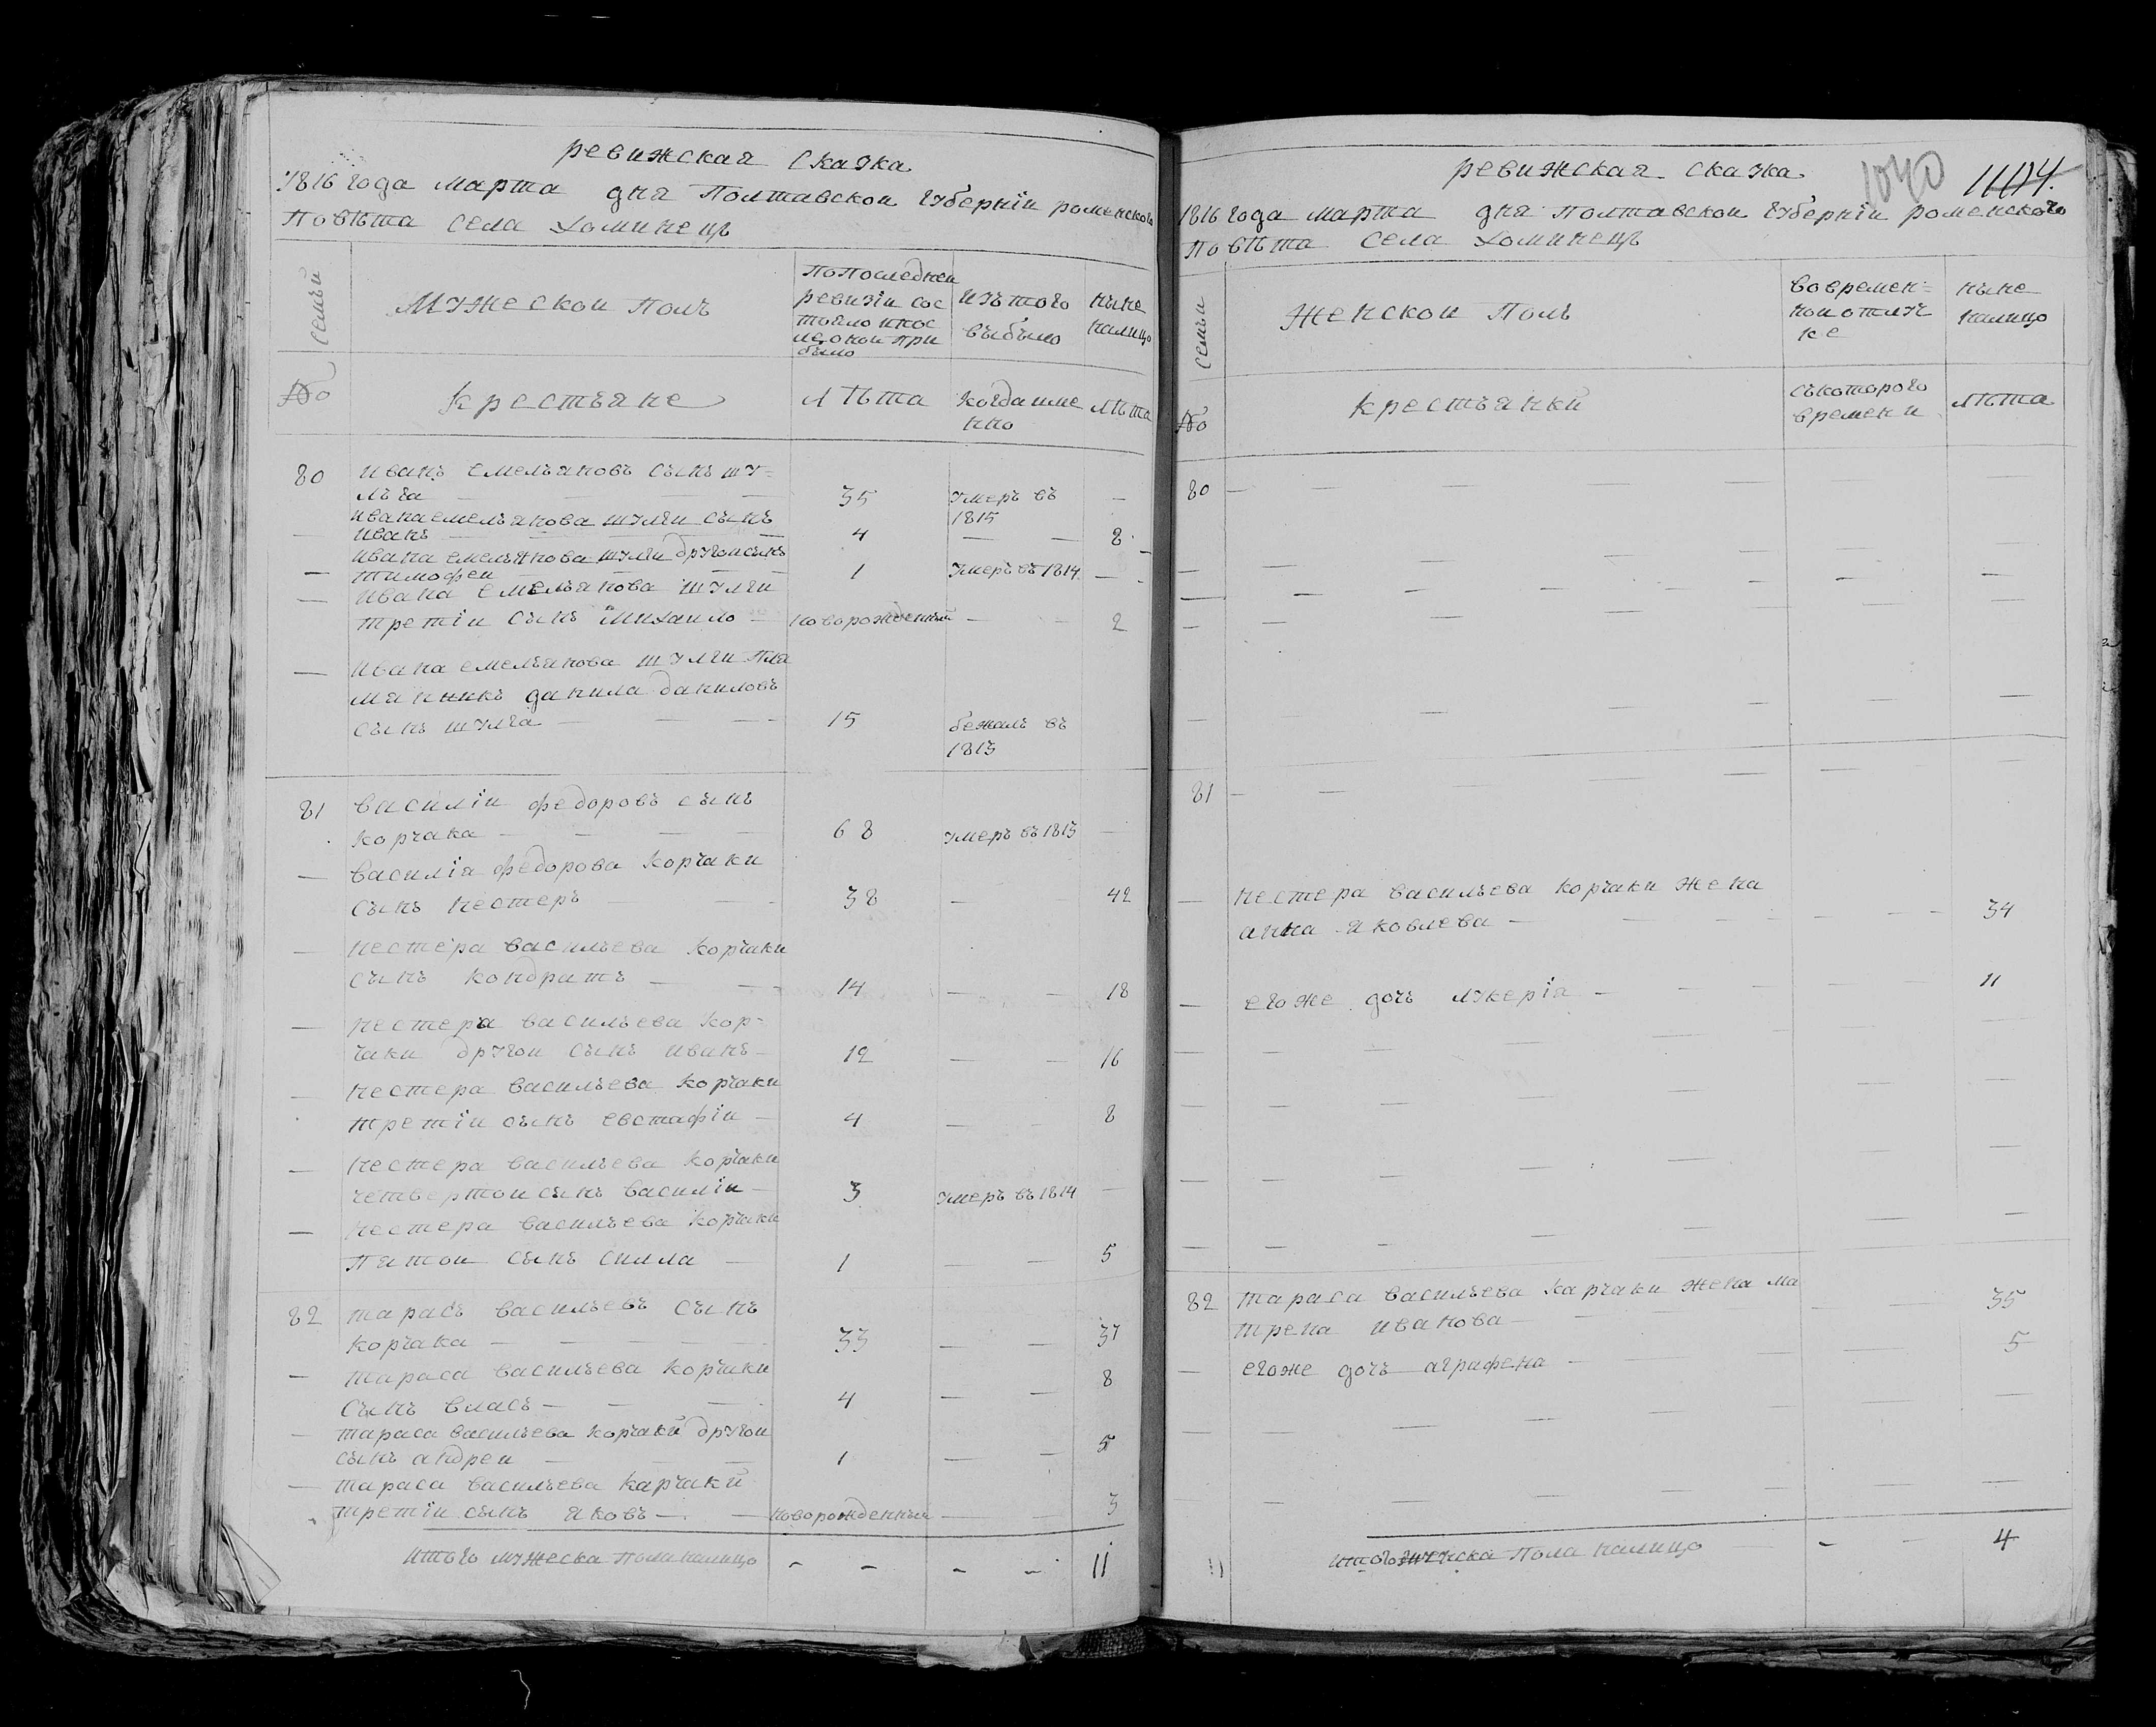 ревижская сказка
1816 года марта дня Полтавской губернїи роменского
Повѣта села хоминецъ
семьи
Мужеской Полъ
По последней
ревизїи сос
тояло и пос
ле оной при
было
Изъ того
выбыло
ныне
налицо
№
крестьяне
лѣта
когда име
нно
лѣта
80 иванъ емельяновъ сынъ шу=
лъга — 35 умеръ въ —
1815
ивана емельянова шулги сынъ
иванъ — 4 — — 8
ивана емельянова шулги другои сынъ
тимофеи — 1 умеръ въ 1814 —
— ивана емельянова шулги
третіи сынъ михаило — новорожденныи — 2
— ивана емельянова шулги пля
мянникъ данила даниловъ
сынъ шулга — 15 бежалъ въ
1813
81 василіи федоровъ сынъ
корчака — 68 умеръ въ 1813 —
— василія федорова корчаки
сынъ нестеръ — 38 — 42
— нестера васильева корчаки
сынъ кондратъ — 14 — — 18
— нестера васильева кор-
чаки другои сынъ иванъ — 12 — — 16
— нестера васильева корчаки
третіи сынъ евстафіи — 4 — — 8
— нестера васильева корчаки
четвертои сынъ василіи — 3 умеръ въ 1814 —
— нестера васильева корчаки
пятои сынъ силла — 1 — — 5
82 тарасъ васильевъ сынъ
корчака — 33 — — 37
— тараса васильева корчаки
сынъ власъ — 4 — — 8
— тараса васильева корчаки другои
сынъ андреи — 1 — — 5
— тараса васильева карчаки
третіи сынъ яковъ — новорожденныи — 3
итого мужеска пола налицо - - - - 11
ревижская сказка
1040 1104.
1816 года марта дня полтавской губернїи роменского
Повѣта села хоминецъ
семьи
женской Полъ
во времен=
ной отлуч
ке
ныне
налицо
№
крестьянки
съ которого
времени
лѣта
80
81
— нестера васильева корчаки жена
анна яковлева — 34
— егоже дочь лукерія — 11
82 тараса васильева карчаки жена ма
трена иванова — 35
— егоже дочь аграфена — 5
итого женска пола налицо - - 4